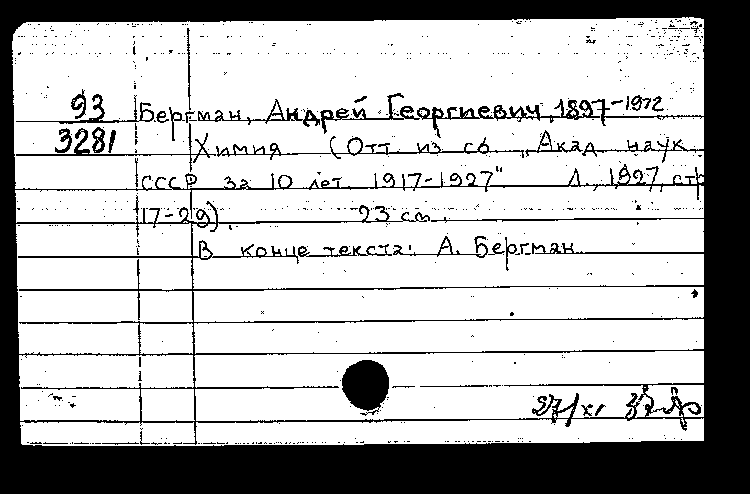 93
3281
Бергман, Андрей Георгиевич, 1897-1972
Химия (Отт. из сб. "Акад. наук
СССР за 10 лет. 1917-1927" Л., 1927, стр
17-29). 23 см.
В конце текста: А. Бергман
27/XI